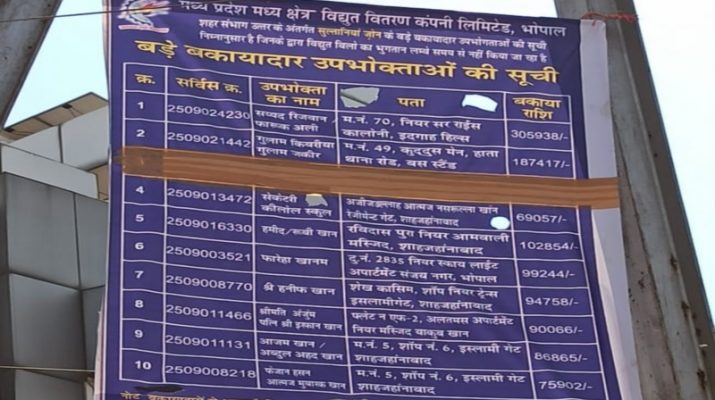 मध्य प्रदेश मध्य क्षेत्र विद्युत वितरण कंपनी लिमिटेड, भोपाल
शहर संभाग उत्तर के अंतर्गत सुल्तानिया जोन के बड़े बकायादार उपभोगताओं की सूची
निम्नानुसार है जिनके द्वारा विद्युत बिलों का भुगतान लम्बे समय से नहीं किया जा रहा है
बड़े बकायादार उपभोक्ताओं की सूची
क्र. सर्विस क्र. उपभोक्ता का नाम पता बकाया राशि
1 2509024230 सय्यद रिजवान/ फारूक अली म.नं. 70, नियर सर राईस कालोनी, इदगाह हिल्स 305938/-
2 2509021442 गुलाम किबरीया गुलाम जकीर म.नं. 49, कुद्दुस मेन, हाता थाना रोड, बस स्टैंड 187417/-
4 2509013472 सेकेटरी कीलोल स्कूल अजीजउल्लाह आत्मज नसरूल्ला खान रेजीमेन्ट गेट, शाहजहांनाबाद 69057/-
5 2509016330 हमीद/रूबी खान रविदास पुरा नियर आमवाली मस्जिद, शाहजहांनाबाद 102854/-
6 2509003521 फारेहा खानम दु.नं. 2835 नियर स्काय लाईट अपार्टमेंट संजय नगर, भोपाल 99244/-
7 2509008770 श्री हनीफ खान शेख कासिम, शॉप नियर ट्रेन्स इसलामीगेट, शाहजहांनाबाद 94758/-
8 2509011466 श्रीमति अंजुम पत्नि श्री इरफान खान फ्लेट न एफ-2, अलतमस अपार्टमेंट नियर मस्जिद याकुब खान 90066/-
9 2509011131 आजम खान/ अब्दुल अहद खान म.नं. 5, शॉप नं. 6, इस्लामी गेट शाहजहांनाबाद 86865/-
10 2509008218 फेजान हसन आत्मज मुबारक खान म.नं. 5, शॉप नं. 6, इस्लामी गेट शाहजहांनाबाद 75902/-